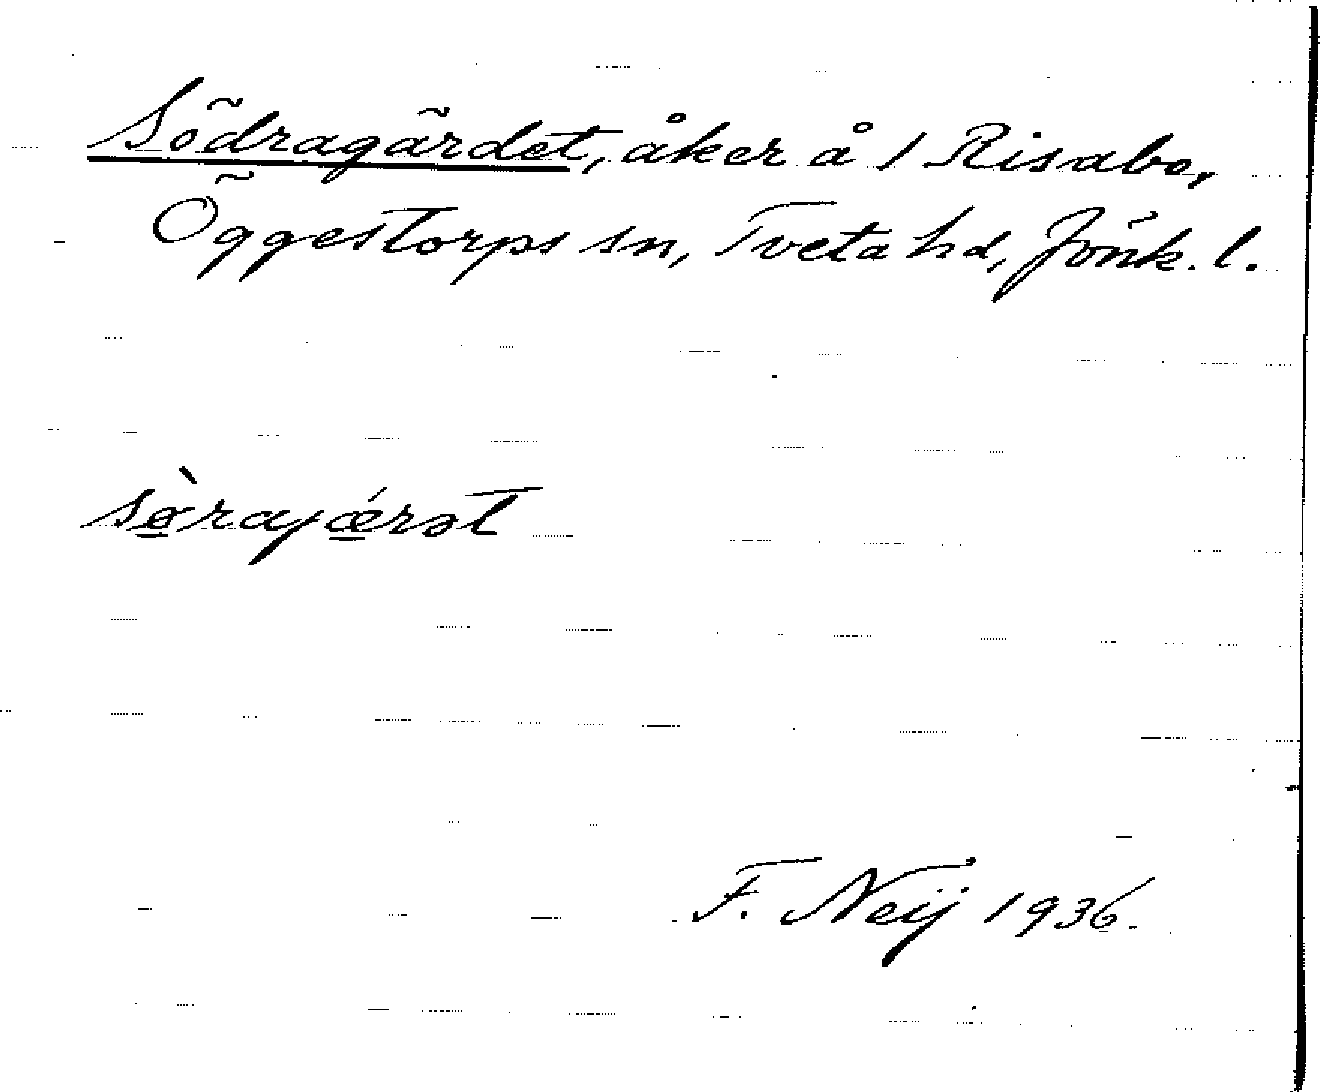 Södragärdet, åker å 1 Risabo,
Öggestorps sn, Tveta hd, Jönk. l.
sø̠̀rajǽ̠rət
F. Neij 1936.